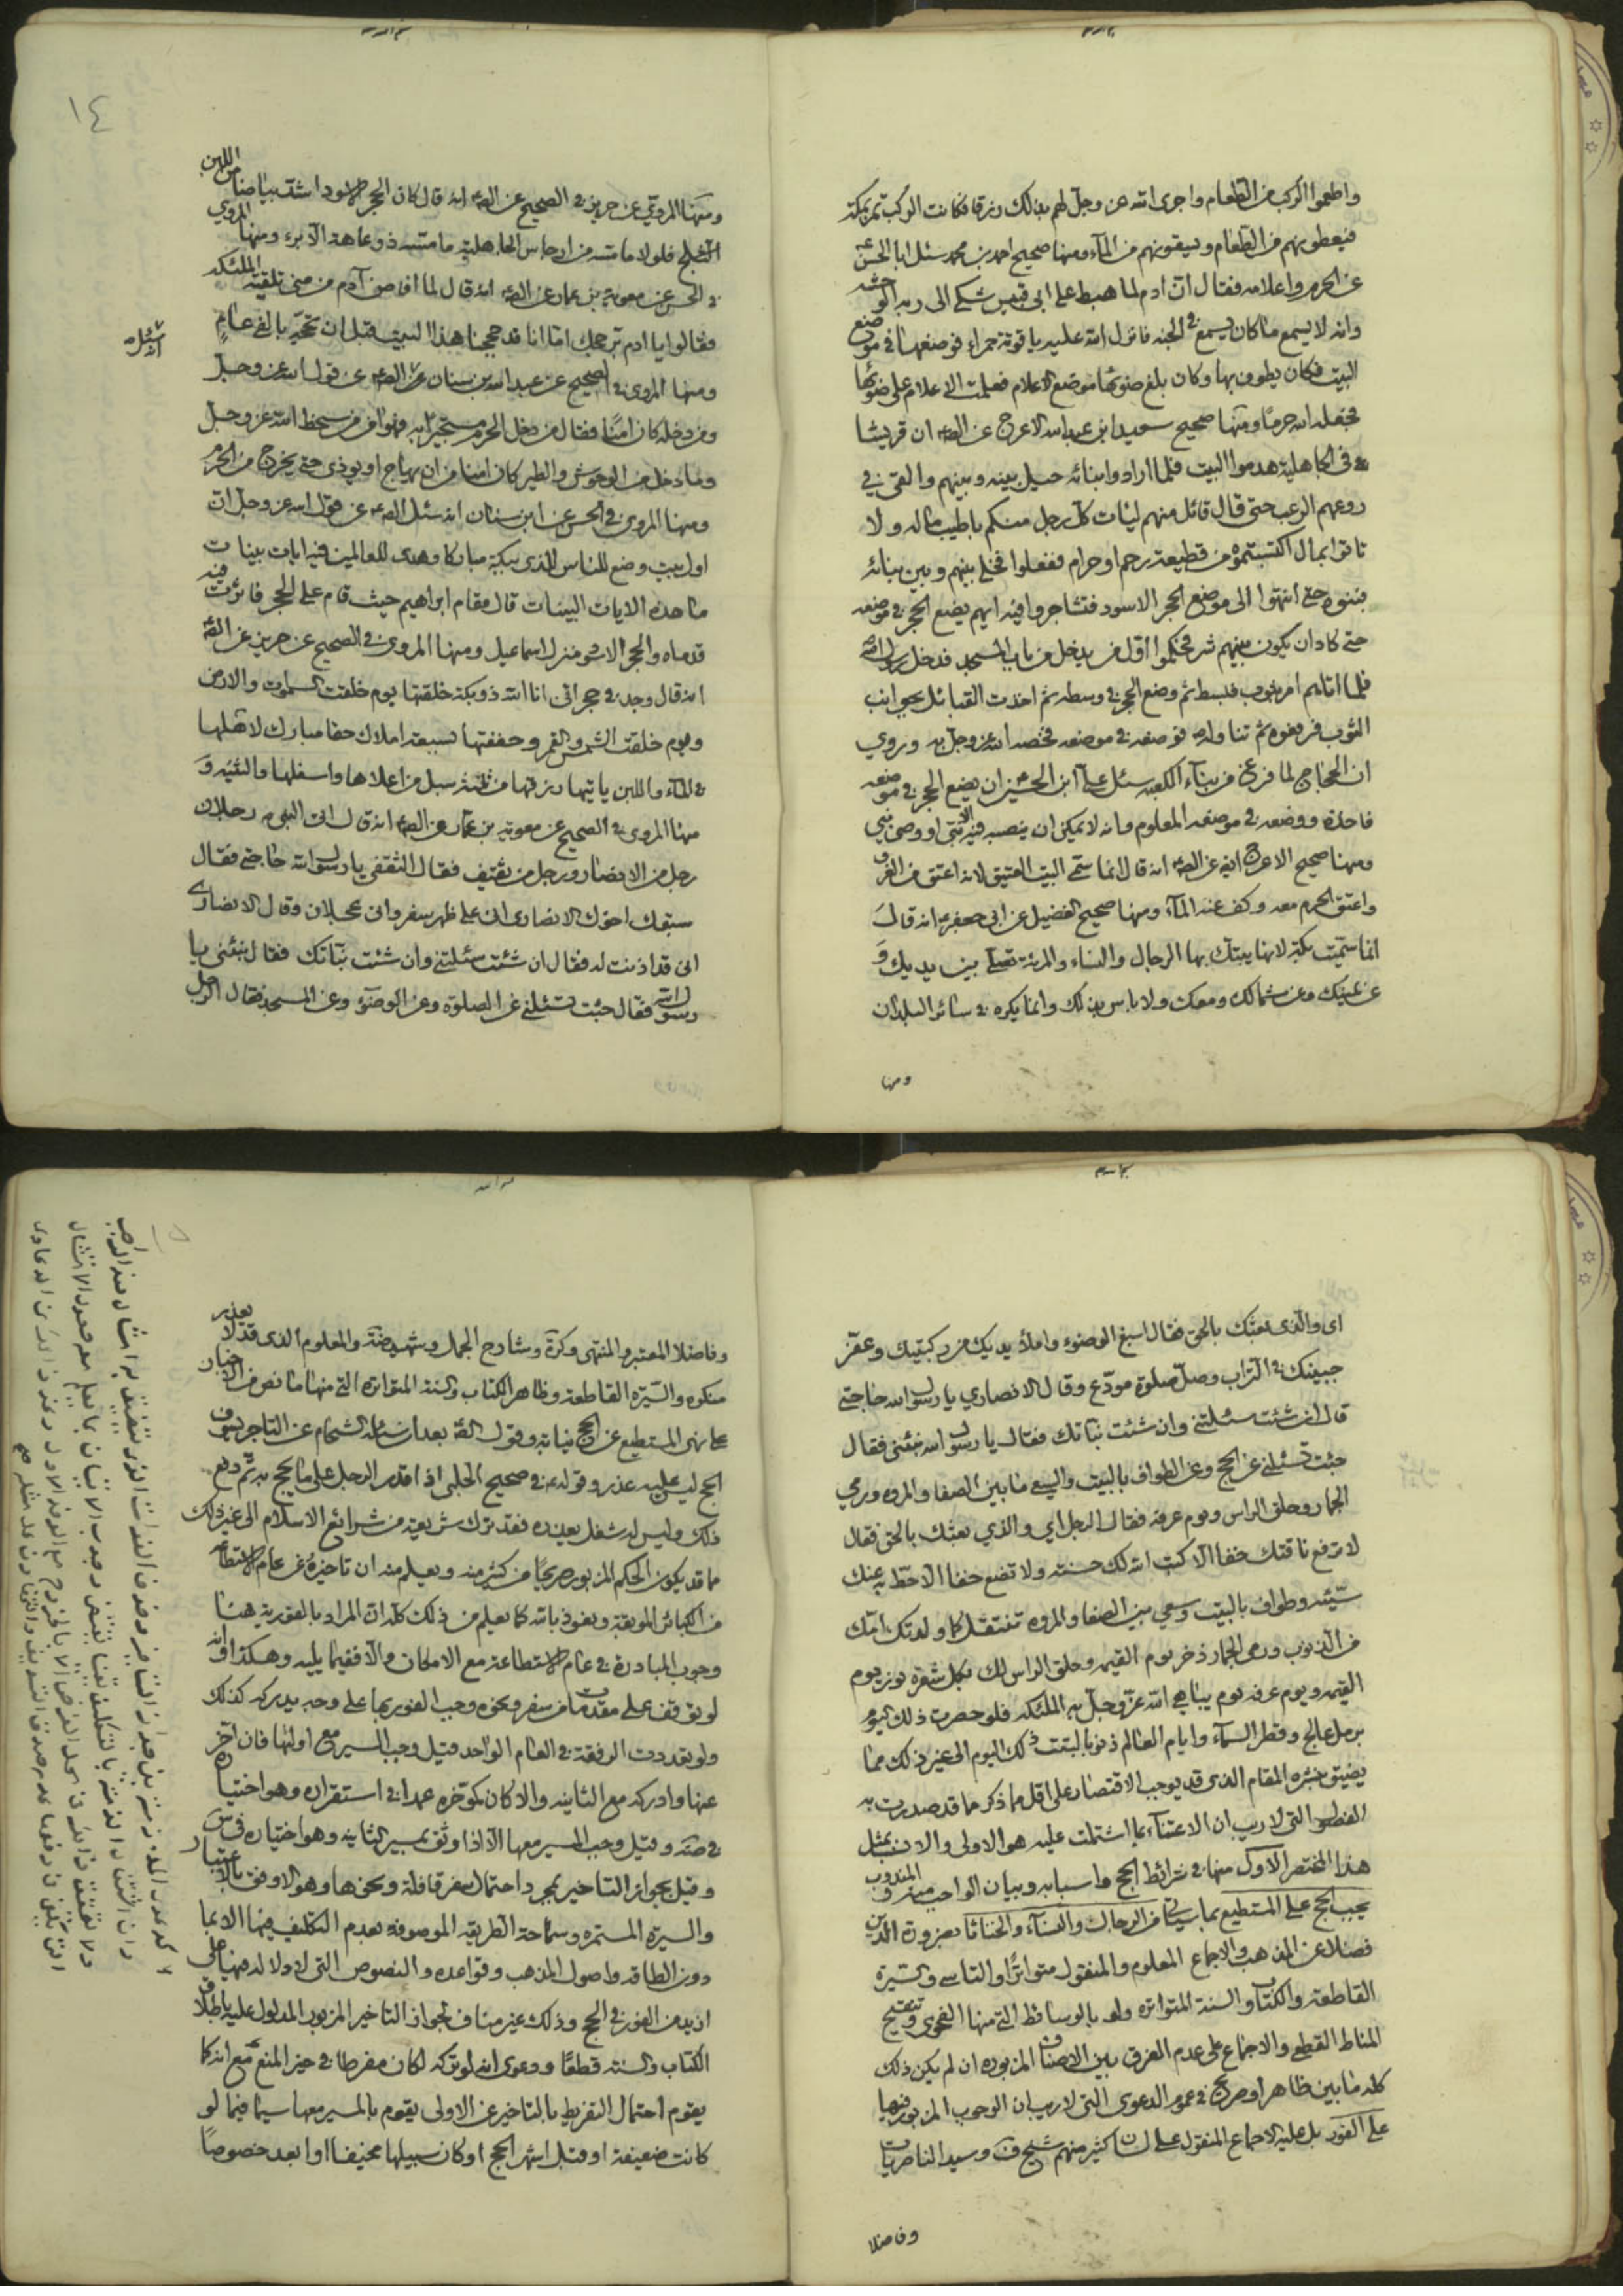 واطعموا الركب من الطعام واجرى الله عز وجل لهم بذلك رزقا فكانت الركب تمر بمكة
فيعطونهم من الطعام ويسقونهم من الماء ومنها صحيح احمد بن محمد سئل ابا الحسن
عن الحرم واعلامه فقال ان ادم لما هبط على ابي قبيس شكى الى ربه الوحشة
وانه لا يسمع ما كان يسمع في الجنة فانزل الله عليه ياقوتة حمراء فوضعها في موضع
البيت فكان يطوف بها وكان بلغ ضوئها موضع الاعلام فعلمت الاعلام على ضوئها
فجعله الله حرما ومنها صحيح سعيد ابن عبد الله الاعرج عن الصه ان قريشا
في الجاهلية هدموا البيت فلما ارادوا بنائه حيل بينه وبينهم والقى في
روعهم الرعب حتى قال قائل منهم ليئات كل رجل منكم باطيب ماله ولا
تاتوا بمال اكتسبتموه من قطيعة رحم او حرام ففعلوا فخلى بينهم وبين بنائه
فبنوه حتى انتهوا الى موضع الحجر الاسود فتشاجروا فيه ايهم يضع الحجر في موضعه
حتى كاد ان يكون بينهم شر فحكموا اول من يدخل من باب المسجد فدخل رسول الله ص
فلما اتاهم امر بثوب فبسط ثم وضع الحجر في وسطه ثم اخذت القبائل بجوانب
الثوب فرفعوه ثم تناوله ص فوضعه في موضعه فخصه الله عز وجل به وروي
ان الحجاج لما فرغ من بناء الكعبة سئل علي ابن الحسين ان يضع الحجر في موضعه
فاخذه ووضعه في موضعه المعلوم وانه لا يمكن ان ينصبه فيه الا نبي او وصي نبي
ومنها صحيح الاعرج ايضا عن الصه انه قال انما سمي البيت العتيق لانه اعتق من الغرق
واعتق الحرم معه وكف عنه الماء ومنها صحيح الفضيل عن ابي جعفر انه قال
انما سميت بكة لانها يبتك بها الرجال والنساء والمرئة تصلي بين يديك و
عن يمينك وعن شمالك ومعك ولا باس بذلك وانما يكره في سائر البلدان
ومنها
١٤
ومنها المروي عن حريز في الصحيح عن الصه انه قال كان الحجر الاسود اشد بياضا من اللبن
الثلج فلولا ما مسه من ارجاس الجاهلية ما مسه ذو عاهة الا برء ومنها المروي
في الحسن عن معوية بن عمار عن الصه انه قال لما افاض آدم من منى تلقته الملئكة
فقالوا يا ادم بر حجك اما انا قد حججنا هذا البيت قبل ان تحجه بالفي عام
ومنها المروي في الصحيح عن عبد الله بن سنان عن الصه عن قول الله عز وجل
انه سئله
ومن دخله كان امنا فقال من دخل الحرم مستجيرا به فهو امن من سخط الله عز وجل
وما دخل من الوحوش والطير كان امنا من ان يهاج او يوذى حتى يخرج من الحرم
ومنها المروي في الحسن عن ابن سنان انه سئل الصه عن قول الله عز وجل ان
اول بيت وضع للناس للذي ببكة مباركا وهدى للعالمين فيه ايات بينات
ما هذه الايات البينات قال مقام ابراهيم حيث قام على الحجر فاثرت فيه
قدماه والحجر الاسود ومنزل اسماعيل ومنها المروي في الصحيح عن حريز عن الصه
انه قال وجد في حجر اني انا الله ذو بكة خلقتها يوم خلقت السموات والارض
ويوم خلقت الشمس والقمر وحففتها بسبعة املاك حفا مبارك لاهلها
في الماء واللبن ياتيها رزقها من ثلثة سبل من اعلاها واسفلها والثنية و
منها المروي في الصحيح عن معوية بن عمار عن الصه انه قال اتى النبي ص رجلان
رجل من الانصار ورجل من ثقيف فقال الثقفي يا رسول الله حاجتي فقال
سبقك اخوك الانصاري اني على ظهر سفر واني عجلان وقال الانصاري
اني قد اذنت له فقال ان شئت سئلتني وان شئت نبأتك فقال نبئني يا
رسول الله فقال جئت تسئلني عن الصلوة وعن الوضوء وعن المسجد فقال الرجل
اي والذي بعثك بالحق فقال اسبغ الوضوء واملأ يديك من ركبتيك وعفر
جبينك في التراب وصل صلوة مودع وقال الانصاري يا رسول الله حاجتي
قال ان شئت سئلتني وان شئت نبأتك فقال يا رسول الله نبئني فقال
جئت تسئلني عن الحج وعن الطواف بالبيت والسعي ما بين الصفا والمروه ورمي
الجمار وحلق الراس ويوم عرفه فقال الرجل اي والذي بعثك بالحق فقال
لا ترفع ناقتك خفا الا كتب الله لك حسنة ولا تضع خفا الا حط به عنك
سيئة وطواف بالبيت وسعي بين الصفا والمروه تنفتل كما ولدتك امك
من الذنوب ورمي الجمار ذخر يوم القيمه وحلق الراس لك بكل شعرة نور يوم
القيمه ويوم عرفه يوم يباهي الله عز وجل به الملئكه فلو حضرت ذلك اليوم
برمل عالج وقطر السماء وايام العالم ذنوبا لبتت ذلك اليوم الى غير ذلك مما
يضيق بنشره المقام الذي قد يوجب الاقتصار على اقل مما ذكر مما قد صدرت به
الفصل التي لا ريب ان الاعتناء بما اشتملت عليه هو الاولى والانسب بمثل
هذا المختصر الاول منها في شرائط الحج واسبابه وبيان الواجب منه والمندوب
يجب الحج على المستطيع بما سياتي من الرجال والنساء والخناثا بضرورة الدين
فضلا عن المذهب والاجماع المعلوم والمنقول متواترا والتاسي والسيرة
القاطعة والكتاب والسنة المتواتره ولو بالوسائط التي منها الفحوى وتنقيح
المناط القطعي والاجماع على عدم الفرق بين الاصناف المزبوره ان لم يكن ذلك
كله ما بين ظاهر او صريح في عموم الدعوى التي لا ريب ان الوجوب المزبور فيها
على الفور بل عليه الاجماع المنقول على لسان كثير منهم شيخ ف وسيد الناصريات
وفاضلا
وفاضلا المعتبر والمنتهى وكرة وشارح الجمل وشهيد ضة والمعلوم الذي قد لا يعذر
منكره والسيرة القاطعة وظاهر الكتاب والسنة المتواتره التي منها ما نص من الاخبار
على نهي المستطيع عن الحج نيابة وقول الصه بعد ان سئله الشحام عن التاجر يسوف
الحج ليس عليه عذر وقوله في صحيح الحلبي اذا قدر الرجل على ما يحج به ثم دفع
ذلك وليس له شغل يعذره فقد ترك شريعة من شرائع الاسلام الى غير ذلك
مما قد يكون الحكم المزبور صريحا من كثير منه ويعلم منه ان تاخيره عن عام الاستطاعة
من الكبائر الموبقة ونعوذ بالله كما يعلم من ذلك كله ان المراد بالفورية هنا
وجوب المبادرة في عام الاستطاعة مع الامكان والا ففيما يليه وهكذا وانه
لو توقف على مقدمات من سفر ونحوه وجب الفور بها على وجه يدركه كذلك
ولو تعددت الرفقة في العام الواحد قيل وجب المسير مع اولها فان اخر
عنها وادركه مع الثانيه والا كان كموخره عمدا في استقراره وهو اختياره
في ضة وقيل وجب المسير معها الا اذا وثق بمسير الثانيه وهو اختياره في س
وقيل بجواز التاخير بمجرد احتمال سفر قافلة ونحوها وهو الاوفق بالاعتبار
والسيرة المستمره وسماحة الطريقه الموصوفه بعدم التكليف فيها الا بما
دون الطاقه واصول المذهب وقواعده والنصوص التي لا دلالة منها على
ازيد من الفور في الحج وذلك غير مناف لجواز التاخير المزبور المدلول عليه باطلاق
الكتاب والسنة قطعا ودعوى انه لو تركه لكان مفرطا في حيز المنع مع انه كما
يقوم احتمال التفريط بالتاخير عن الاولى يقوم بالمسير معها سيما فيما لو
كانت ضعيفة او قبل اشهر الحج او كان سبيلها مخيفا او ابعد خصوصا